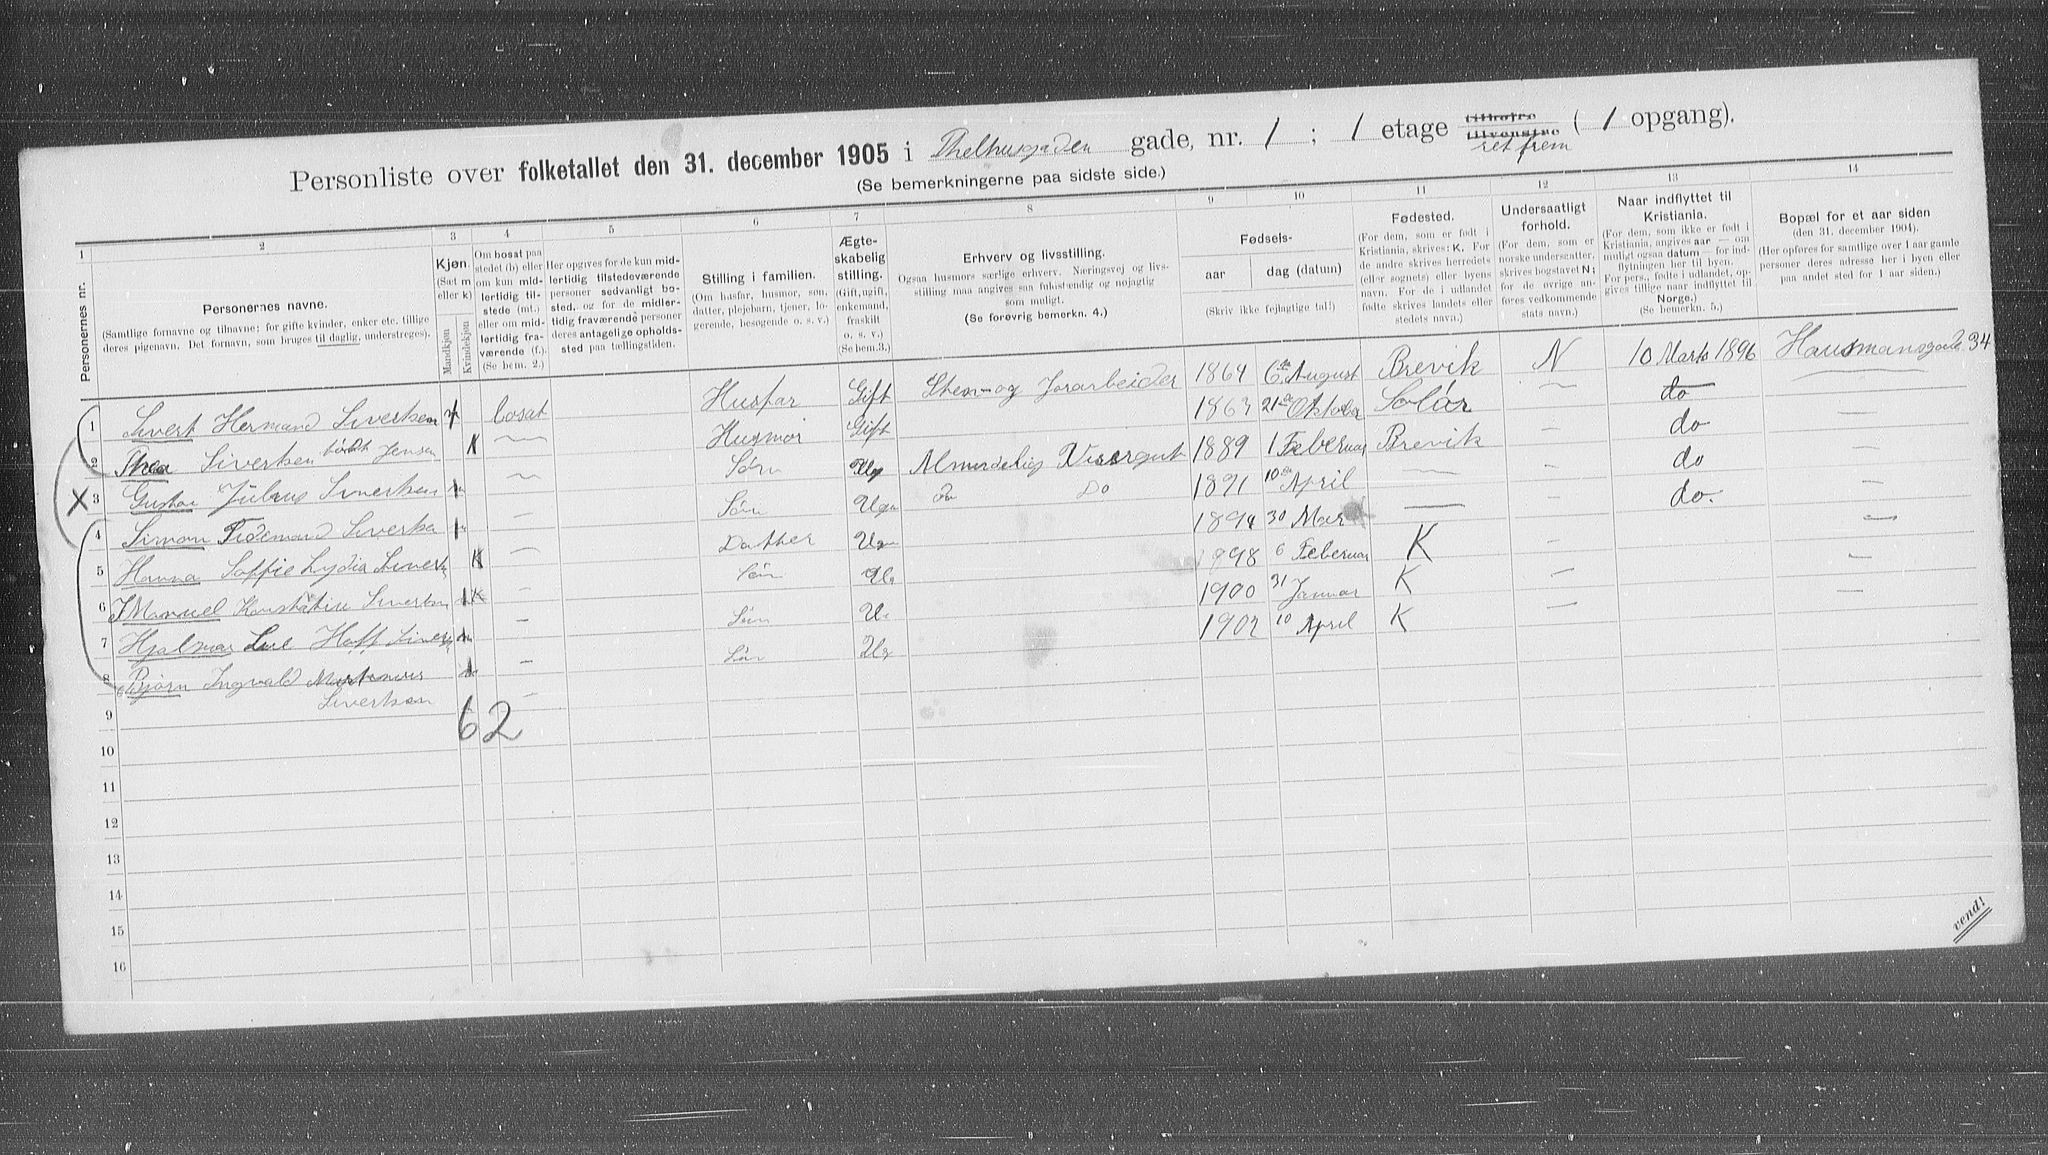 Personliste over folketallet den 31. december 1905 i Thelhusgaden gade, nr. 1 ; 1 etage tilhøire tilvenstre ret frem ( 1 opgang).
(Se bemerkningerne paa sidste side.)
1 2 3 4 5 6 7 8 9 10 11 12 13 14
Personernes nr.
Personernes navne.
(Samtlige fornavne og tilnavne; for gifte kvinder, enker etc. tillige
deres pigenavn. Det fornavn, som bruges til daglig, understreges).
Kjøn.
(Sæt m
eller k)
Mandkjøn
Kvindekjøn
Om bosat paa
stedet (b) eller
om kun mid-
lertidig til-
stede (mt.)
eller om mid-
lertidig fra-
værende (f.).
(Se bem. 2.)
Her opgives for de kun mid-
lertidig tilstedeværende
personer sedvanligt bo-
sted, og for de midler-
tidig fraværende personer
deres antagelige opholds-
sted paa tællingstiden.
Stilling i familien.
(Om husfar, husmor, søn,
datter, plejebarn, tjener, lo-
gerende, besøgende o. s. v.)
Ægte-
skabelig
stilling.
(Gift, ugift,
enkemand,
fraskilt
o. s. v.)
(Se bem.3.)
Erhverv og livsstilling.
Ogsaa husmors særlige erhverv. Næringsvej og livs-
stilling maa angives saa fuldstændig og nøjagtig
som muligt.
(Se forøvrig bemerkn. 4.)
Fødsels-
aar
dag (datum)
(Skriv ikke fejlagtige tal!)
Fødested.
(For dem, som er født i
Kristiania, skrives: K. For
de andre skrives herredets
(eller sognets) eller byens
navn. For de i udlandet
fødte skrives landets eller
stedets navn.)
Undersaatligt
forhold.
(For dem, som er
norske undersaatter,
skrives bogstavet N;
for de øvrige an-
føres vedkommende
stats navn.)
Naar indflyttet til
Kristiania.
(For dem, som ikke er født i
Kristiania, angives aar — om
muligt ogsaa datum — for ind-
flytningen her til byen.
For pers., fødte i udlandet, op-
gives tillige naar indflyttet til
Norge.)
(Se bemerkn. 5.)
Bopæl for et aar siden
(den 31. december 1904).
(Her opføres for samtlige over 1 aar gamle
personer deres adresse her i byen eller
paa andet sted for 1 aar siden.)
1 Sivert Hermand Sivertsen m bosat Husfar Gift Sten- og Jorarbeider 1864 6te August Brevik N 10 Marts 1896 Hausmansgade 34
2 Thea Sivertsen født Jensen K Husmor Gift 1863 21de Oktober Solør do
3 Gustav Julius Sivertsen m Sön Ug Almindelig Visergut 1889 1 Februar Brevik do
4 Simon Tidemand Sivertsen m Sön Ug do Do 1891 10de April do
5 Hanna Soffie Lydia Sivertsen K Datther Ug 1894 30 Mar do.
6 Manuel Konstatin Sivertsen Sön Ug 1898 6 Februar K
7 Hjalmar Hoff Sivertsen m Sön Ug 1900 31 Januar K
8 Bjørn Ingvald Martinius Sivertsen m Sön Ug 1902 10 April K
62
9
10
11
12
13
14
15
16
vend!